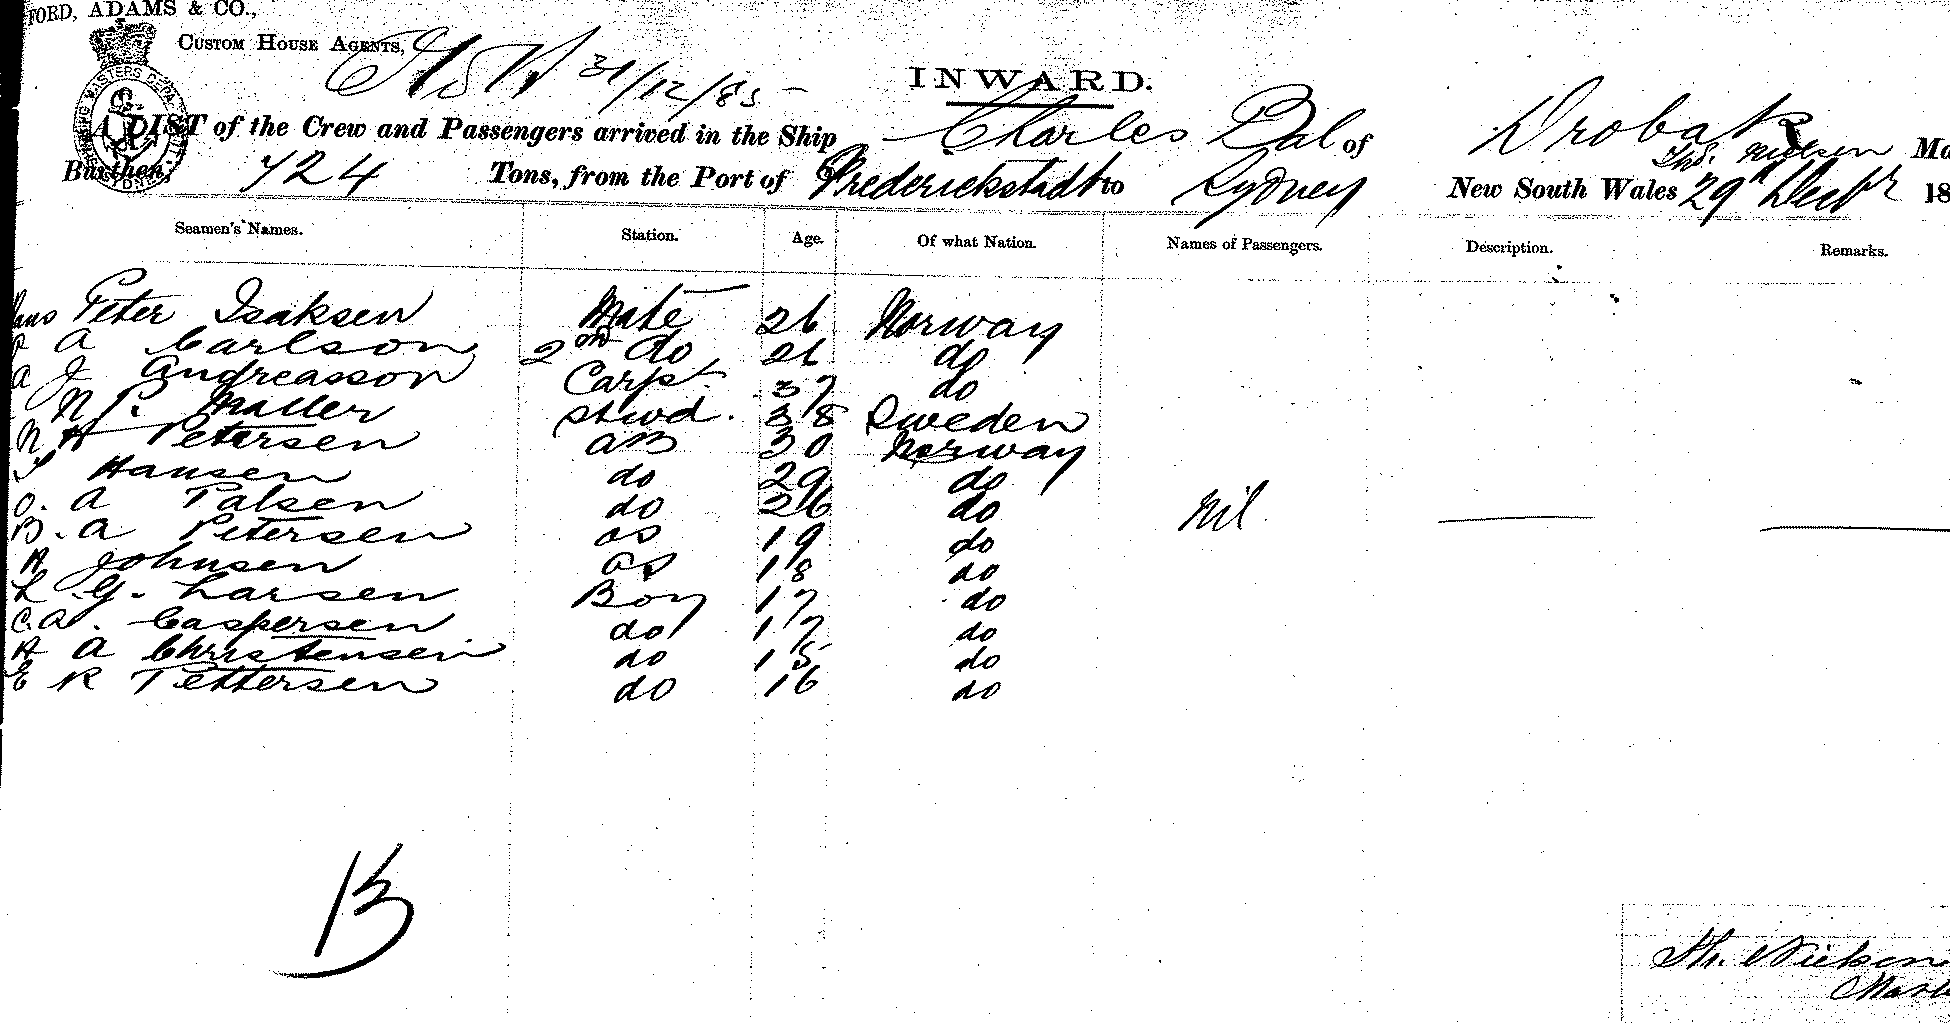 FORD, ADAMS & CO.,
CUSTOM HOUSE AGENTS,
31/12/85
INWARD.
A LIST of the Crew and Passengers arrived in the Ship Charles Bal of Drobak
Ths. Nielsen Ma
Burthen, 424 Tons, from the Port of Frederickstadt to Sydney New South Wales 29th Decbr 18
Seamen's Names. Station. Age. Of what Nation. Names of Passengers. Description. Remarks.
Hans Peter Isaksen Mate 26 Norway
A Carlson 2nd do 26 do
A J Andreasson Carpt. 37 do
N P. Maller Stwd. 38 Sweden
N H Petersen AB 30 Norway
S Hansen do 29 do
O. A Palsen do 26 do Nil
B. A Petersen OS 19 do
H Johnsen OS 18 do
L. G. Larsen Boy 17 do
C. A. Caspersen do 17 do
H A Christensen do 15 do
E R Pettersen do 16 do
13
Th. Nielsen